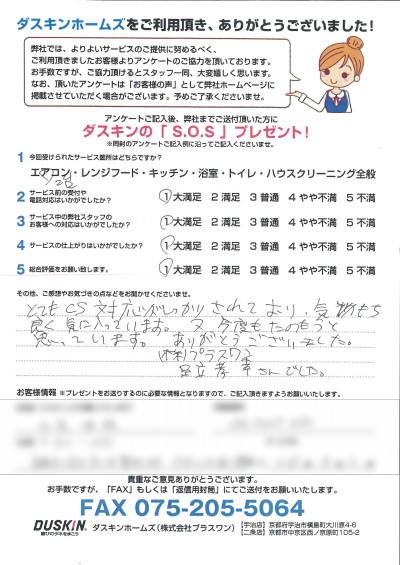 ダスキンホームズをご利用頂き、ありがとうございました!
弊社では、よりよいサービスのご提供に努めるべく、
ご利用頂きましたお客様よりアンケートのご協力を頂いております。
お手数ですが、ご協力頂けるとスタッフ一同、大変嬉しく思います。
なお、頂いたアンケートは「お客様の声」として弊社ホームページに
掲載させていただく場合がございます。予めご了承くださいませ。
アンケートご記入後、弊社までご送付頂いた方に
ダスキンの「S.O.S」プレゼント!
※同封のアンケートご記入例に沿ってご記入くださいませ。
1 今回受けられたサービス箇所はどちらですか?
エアコン・レンジフード・キッチン・浴室・トイレ・ハウスクリーニング全般
2 サービス前の受付や
電話対応はいかがでしたか? 1 大満足 2 満足 3 普通 4 やや不満 5 不満
3 サービス中の弊社スタッフの
お客様への対応はいかがでしたか? 1 大満足 2 満足 3 普通 4 やや不満 5 不満
4 サービスの仕上がりはいかがでしたか? 1 大満足 2 満足 3 普通 4 やや不満 5 不満
5 総合評価をお願い致します。 1 大満足 2 満足 3 普通 4 やや不満 5 不満
その他、ご感想やお気づきの点などをお聞かせくださいませ。
とてもCS対応がしっかりされており、気持ち
良く気に入っています。又今度もたのもうと
思っています。ありがとうございました。
(株)プラスワン
足立孝幸さんでした。
お客様情報 ※プレゼントをお送りするのに必要な情報となりますので、ご記入頂けますようお願いいたします。
貴重なご意見ありがとうございます。
お手数ですが、「FAX」もしくは「返信用封筒」にてご送付をお願いいたします。
FAX 075-205-5064
DUSKIN 喜びのタネをまこう
ダスキンホームズ(株式会社プラスワン)
【宇治店】京都府宇治市槇島町大川原4-6
【二条店】京都市中京区西ノ京原町105-2